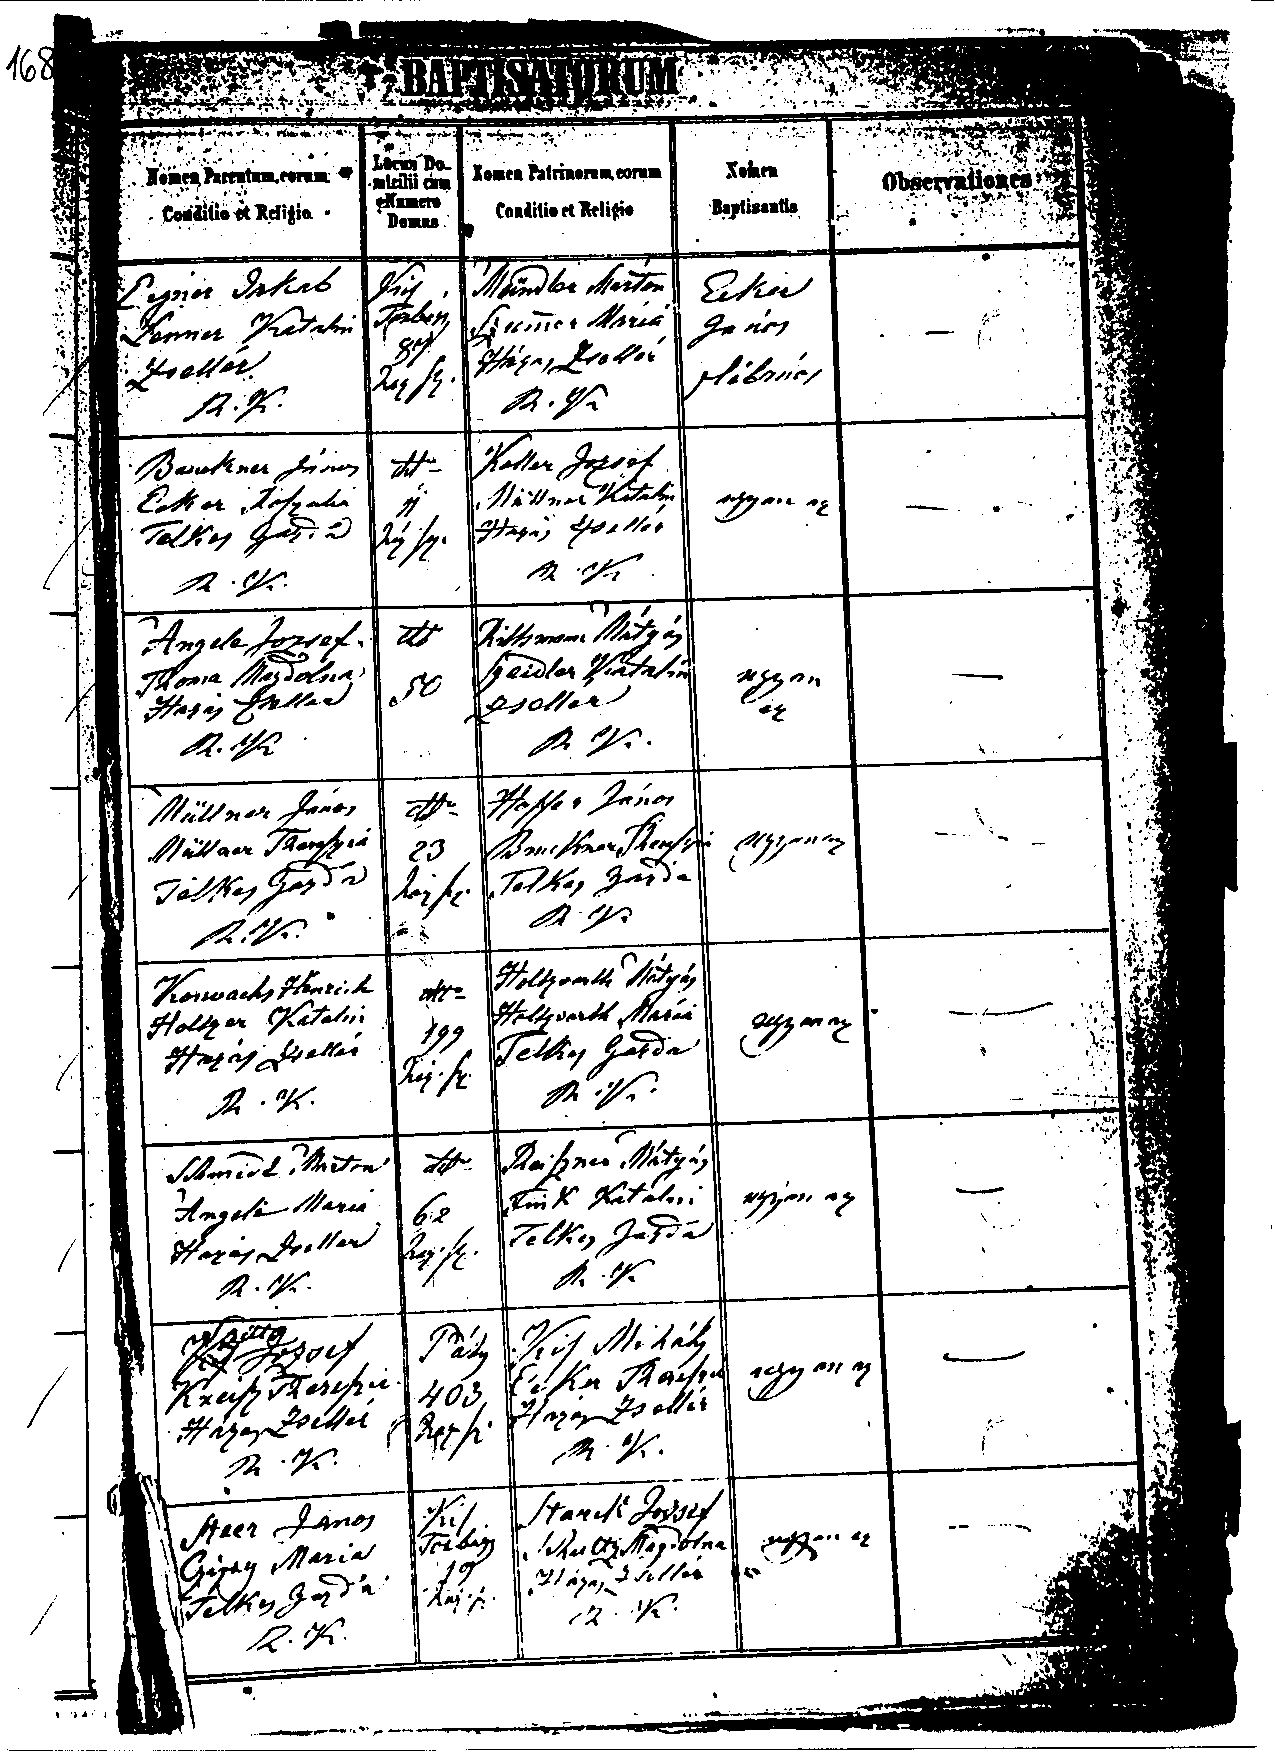 168
BAPTISATORUM
Nomen Parentum, eorum
Conditio et Religio
Locus Do-
micilii cum
Numero
Domus
Nomen Patrinorum, eorum
Conditio et Religio
Nomen
Baptisantis
Observationes
Jakab
Katalin
Zsellér
R. K.
Kis
Torbágy
87
Márton
Mária
Házas Zsellér
R. K.
Ecker
János
plébános
Bruckner János
Ecker Roszalia
Telkes Gazda
R. K.
dtto
Keller Jozsef
Müllner Katalin
Házas Zsellér
R. K.
ugyan az
Angele Jozsef
Thoma Magdolna
Házas Zseller
R. K.
dtto
50
Mátyás
Szeidler Katalin
Zseller
R. K.
ugyan
az
Müllner János
Müllner Thereszia
Telkes Gazda
R. K.
dtto
23
János
Bruckner Thereszia
Telkes Gazda
R. K.
ugyan az
Henrich
Holtzer Katalin
Házas Zsellér
R. K.
dtto
199
Holtzvarth Mátyás
Holtzvarth Mária
Telkes Gazda
R. K.
ugyan az
Schmidt Márton
Angeli Maria
Házas Zseller
R. K.
dtto
62
Mátyás
Fink Katalin
Telkes Gazda
R. K.
ugyan az
Jozsef
Thereszia
Házas Zsellér
R. K.
Páty
403
Kis Mihály
Ecker Thereszia
Házas Zsellér
R. K.
ugyan az
János
Maria
Telkes Gazda
R. K.
Kis
Torbágy
19
Starck Jozsef
Magdolna
Házas Zsellér
R. K.
ugyan az